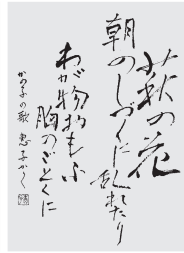 萩の花
朝のしづくに乱れたり
わが物おもふ
胸のごとくに
かの子の歌 恵子かく